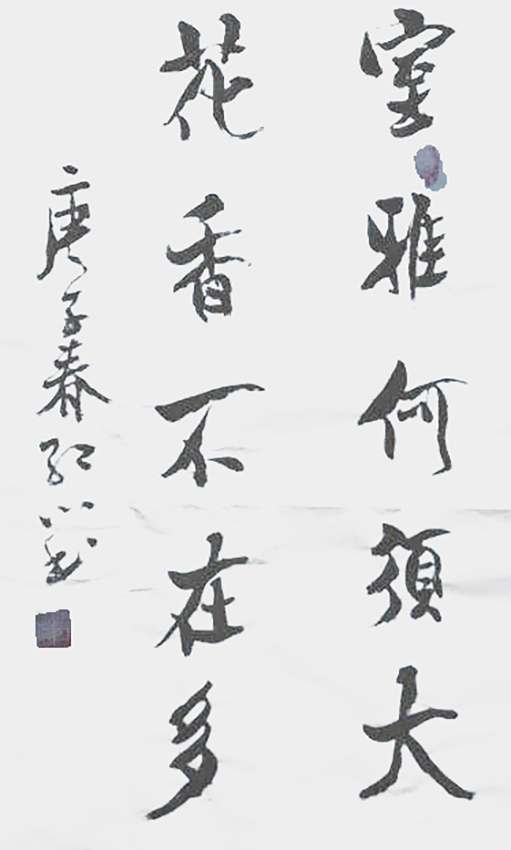 室雅何須大
花香不在多
庚子春红心书